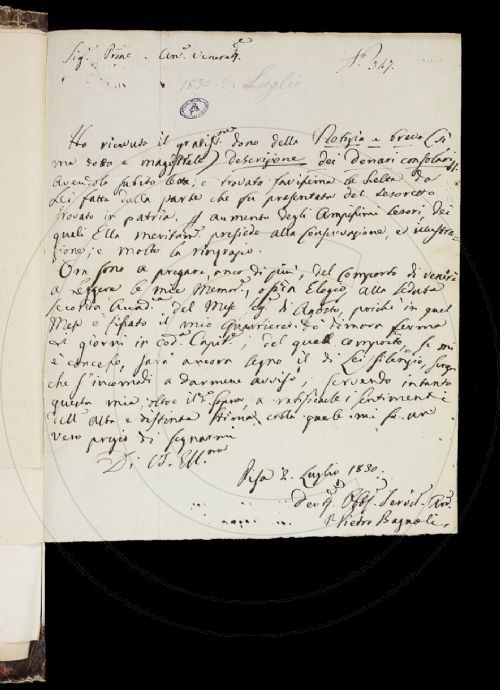 Sig.r Prone e Am.o Venerat.e
N.o 347.
1830. 2. Luglio
Ho ricevuto il gratiss.mo dono della Notizia e breve (si
ma dotta e magistrale) descrizione dei Denari consolari
avendola subito letta, e trovata savissima la scelta da
Lei fatta dalla parte che fu presentata del Tesoretto
trovato in patria, p aumento degli Amplissimi Tesori, dei
quali Ella meritam.e presiede alla conservazione, ed illustra-
zione; e molto la ringrazio.
Ora sono a pregare, anco di più, del comporto di venire
a leggere le mie Memor.e, o sia Elogio, alla seduta
seconda Accad.a del Mese di Agosto, poichè in quel
Mese è fissato il mio di dimora ferma
giorni in cod.a Capit.e. Del qual comporto, se mi
è concesso, sarà ancora segno il di Lei silenzio, senza
che s'incomodi a darmene avviso; servendo intanto
questa mia, oltre il d.o sopra, a ratificarle i sentimenti
dell'alta e distinta stima colla quale mi fo un
vero pregio di segnarmi
Di V.S. Ill.ma
Pisa 2. Luglio 1830.
Dev.o Obb. Servit. Am.o
Pietro Bagnoli.